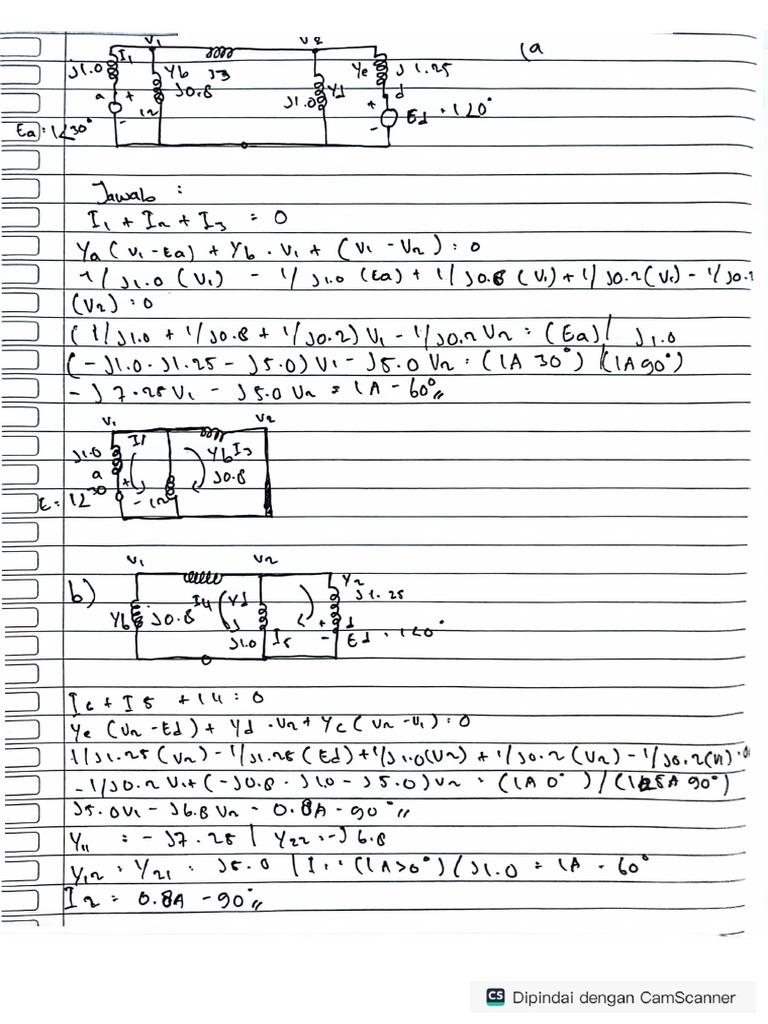 V1 V2 (a
I1 Yb J3 Ye J1.25
J1.0 J0.8 J1.0 Yd d
a + - I2 + - Ed = 1∠0°
Ea = 1∠30°
Jawab :
I1 + I2 + I3 = 0
Ya (V1 - Ea) + Yb . V1 + (V1 - V2) = 0
1/J1.0 (V1) - 1/J1.0 (Ea) + 1/J0.8 (V1) + 1/J0.2 (V1) - 1/J0.2
(V2) = 0
(1/J1.0 + 1/J0.8 + 1/J0.2) V1 - 1/J0.2 V2 = (Ea) / J1.0
(-J1.0 - J1.25 - J5.0) V1 - J5.0 V2 = (1A 30°) / (1A 90°)
- J7.25 V1 - J5.0 V2 = 1A - 60° //
V1 V2
J1.0 I1 Yb I3
a J0.8
E = 1∠30 + - I2
V1 V2
b) Y2
I4 Yd J1.25
Yb J0.8 d
J1.0 I5 + - Ed = 1∠0°
I6 + I5 + I4 = 0
Ye (V2 - Ed) + Yd . V2 + Yc (V2 - V1) = 0
1/J1.25 (V2) - 1/J1.25 (Ed) + 1/J1.0 (V2) + 1/J0.2 (V2) - 1/J0.2 (V1) = 0
- 1/J0.2 V1 + (-J0.8 - J1.0 - J5.0) V2 = (1A 0°) / (1.25A 90°)
J5.0 V1 - J6.8 V2 = 0.8A - 90° //
Y11 = - J7.25 | Y22 = - J6.8
Y12 = Y21 = J5.0 | I1 = (1A>0°) / J1.0 = 1A - 60°
I2 = 0.8A - 90° //
CS Dipindai dengan CamScanner